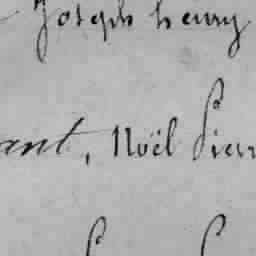 Joseph henry
ant, Noël Pier